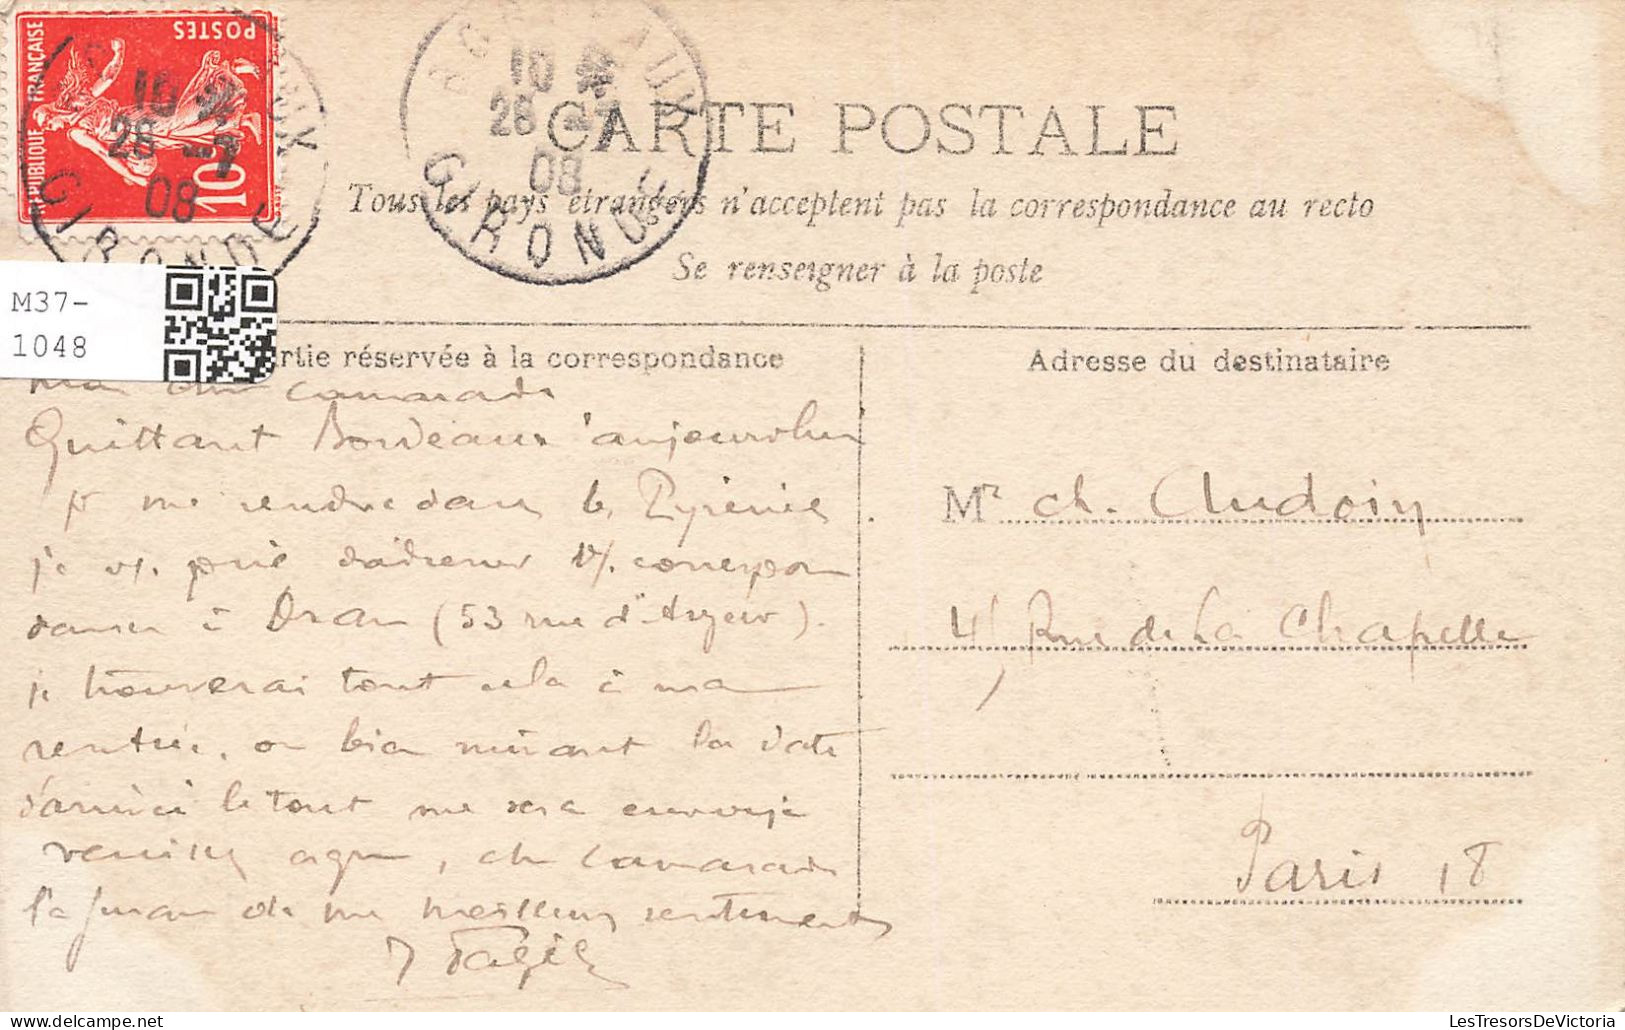 POSTES
RÉPUBLIQUE FRANÇAISE
10
10
26 -7
08
GIRONDE
BORDEAUX
10
26 -7
08
GIRONDE
CARTE POSTALE
Tous les pays étrangers n'acceptent pas la correspondance au recto
Se renseigner à la poste
M37-
1048
rtie réservée à la correspondance
Adresse du destinataire
Mon cher camarade
Quittant Bordeaux aujourd'hui
je me rendre dans les Pyrénées
je vs. prie d'adresser v/. correspon
dance à Oran (53 rue d'Arzew).
je trouverai tout cela à ma
rentrée, ou bien suivant la date
d'arrivée le tout me sera envoyé
veuillez agréer, cher Camarade
l'a de mes meilleurs sentiments
Mr ch. Audoin
4, Rue de La Chapelle
Paris 18
LesTresorsDeVictoria